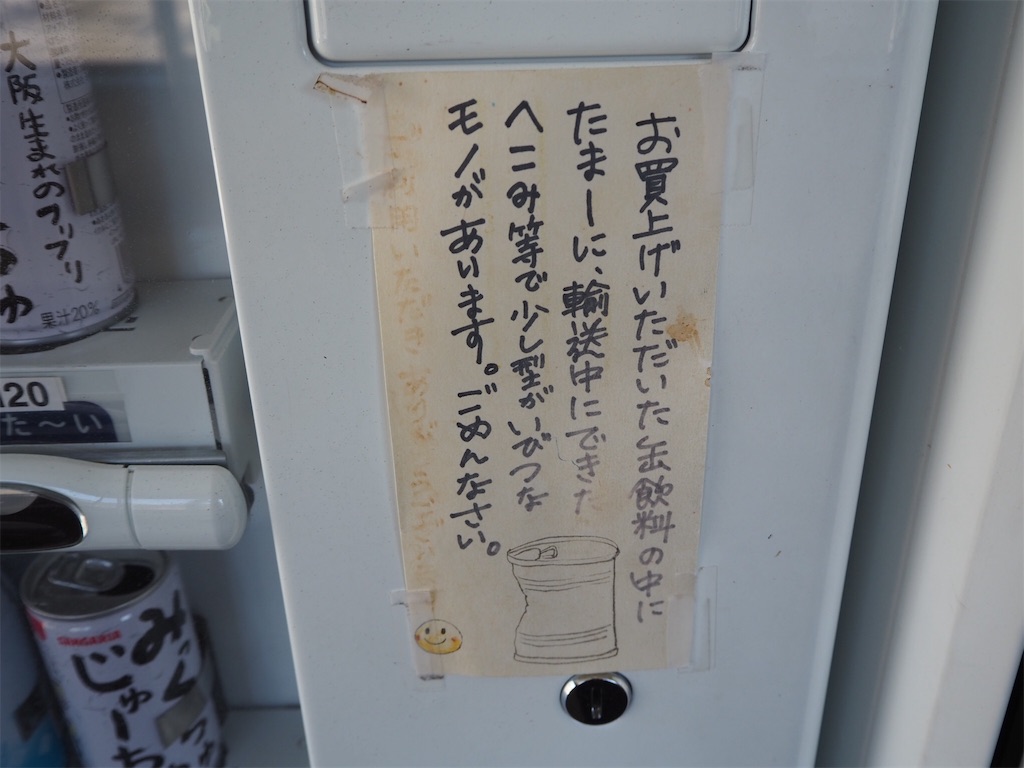 お買上げいただいた缶飲料の中に
たまーに、輸送中にできた
ヘこみ等で少し型がいびつな
モノがあります。ごめんなさい。
大阪生まれのフリフリ
果汁20%
120
た～い
SANGARIA
みっくちゅ
じゅーちゅ